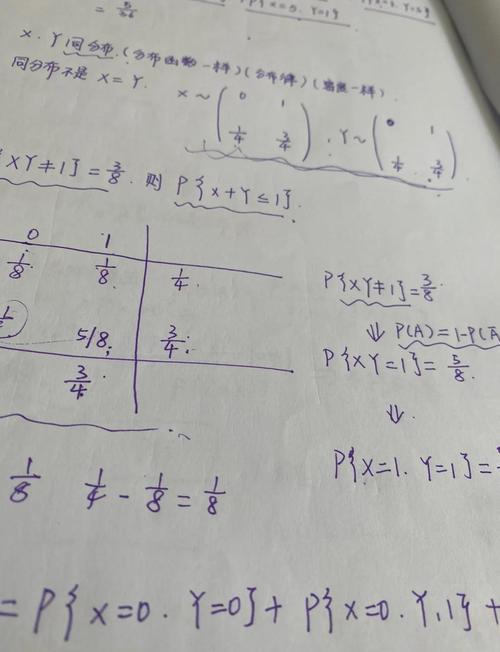 = 5/36
P{X=0, Y=1}
X, Y同分布.(分布函数一样)(分布律)(密度一样).
同分布不是 X = Y.
X ~ ( 0 1 1/4 3/4 ), Y ~ ( 0 1 1/4 3/4 ).
XY≠1}=3/8. 则 P{X+Y≤1}.
0 1
1/8 1/8 1/4
5/8 3/4
3/4
P{XY≠1}=3/8
⇓ P(A)=1-P(A
P{XY=1}= 5/8
⇓
P{X=1, Y=1}=
1/8 1/4 - 1/8 = 1/8
= P{X=0, Y=0}+ P{X=0, Y,1} +